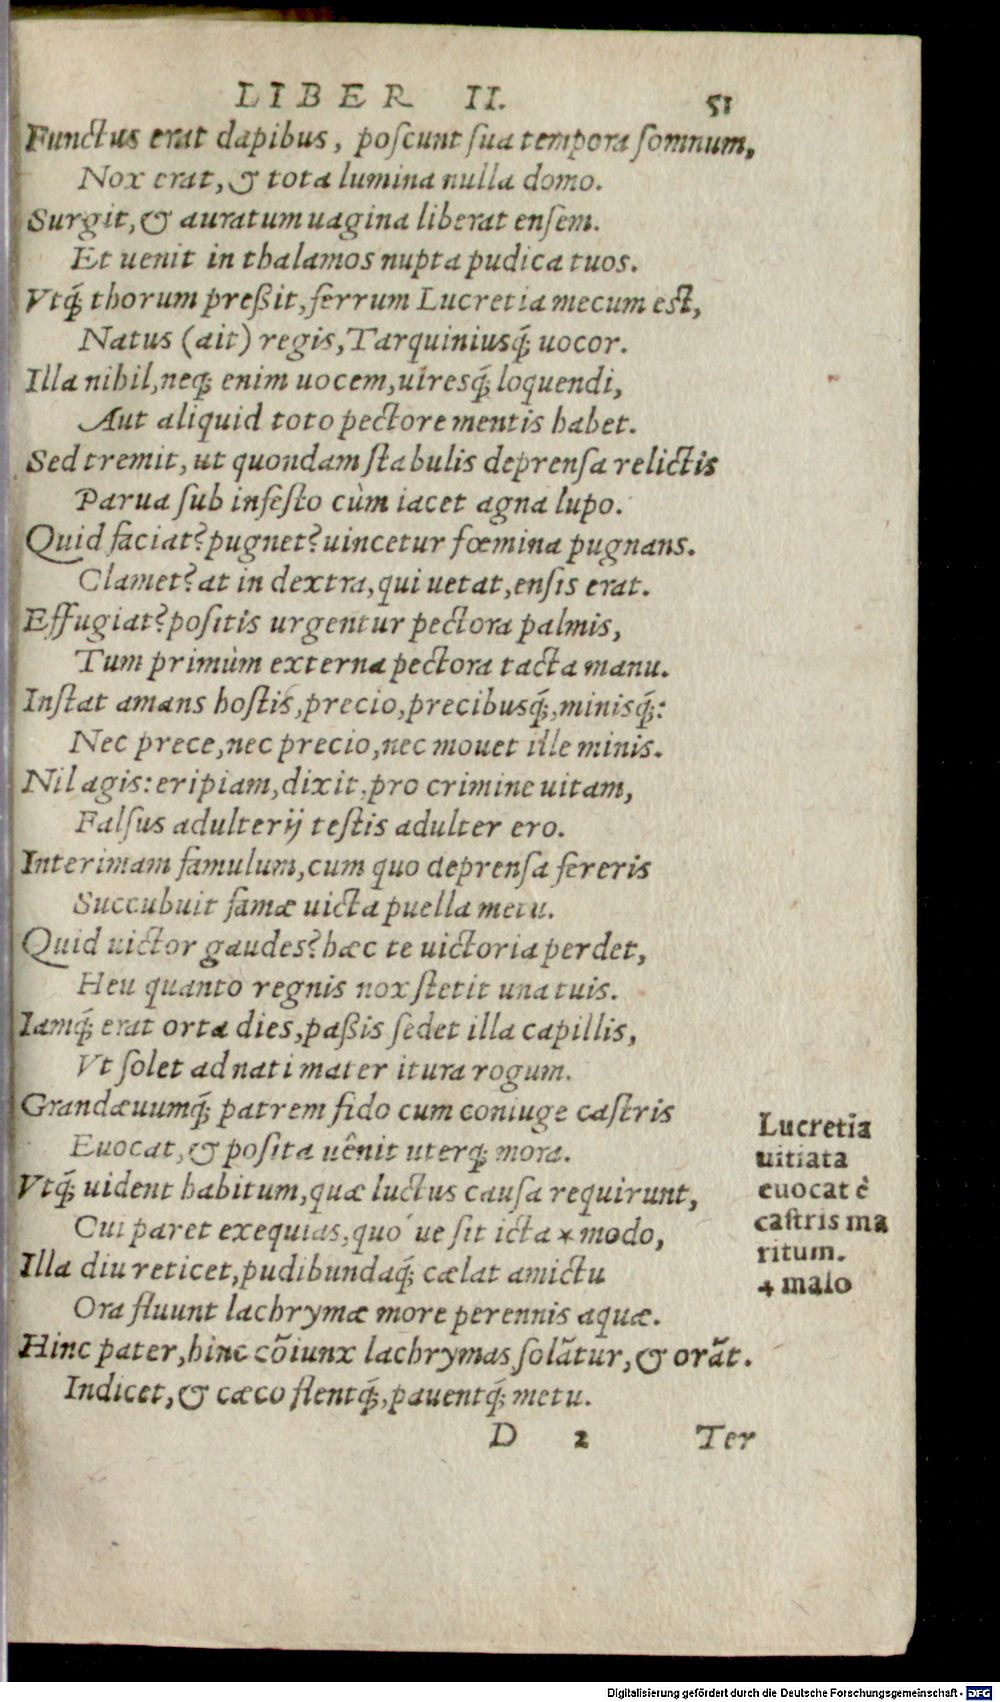 LIBER II. 51
Functus erat dapibus, poscunt sua tempora somnum,
Nox erat, & tota lumina nulla domo.
Surgit, & auratum uagina liberat ensem.
Et uenit in thalamos nupta pudica tuos.
Vtq́; thorum preßit, ferrum Lucretia mecum est,
Natus (ait) regis, Tarquiniusq́; uocor.
Illa nihil, neq; enim uocem, uiresq́; loquendi,
Aut aliquid toto pectore mentis habet.
Sed tremit, ut quondam stabulis deprensa relictis
Parua sub infesto cùm iacet agna lupo.
Quid faciat? pugnet? uincetur fœmina pugnans.
Clamet? at in dextra, qui uetat, ensis erat.
Effugiat? positis urgentur pectora palmis,
Tum primùm externa pectora tacta manu.
Instat amans hostis, precio, precibusq́;, minisq́;:
Nec prece, nec precio, nec mouet ille minis.
Nil agis: eripiam, dixit, pro crimine uitam,
Falsus adulterij testis adulter ero.
Interimam famulum, cum quo deprensa fereris
Succubuit famæ uicta puella metu.
Quid uictor gaudes? hæc te uictoria perdet,
Heu quanto regnis nox stetit una tuis.
Iamq́; erat orta dies, paßis sedet illa capillis,
Vt solet ad nati mater itura rogum.
Grandæuumq́; patrem fido cum coniuge castris
Euocat, & posita uênit uterq; mora.
Vtq́; uident habitum, quæ luctus causa requirunt,
Cui paret exequias, quo´ue sit icta * modo,
Illa diu reticet, pudibundaq́; cælat amictu
Ora fluunt lachrymæ more perennis aquæ.
Hinc pater, hinc cõiunx lachrymas solãtur, & orãt.
Indicet, & cæco flentq́;, pauentq́; metu.
Lucretia
uitiata
euocat è
castris ma
ritum.
* malo
D 2 Ter
Digitalisierung gefördert durch die Deutsche Forschungsgemeinschaft - DFG